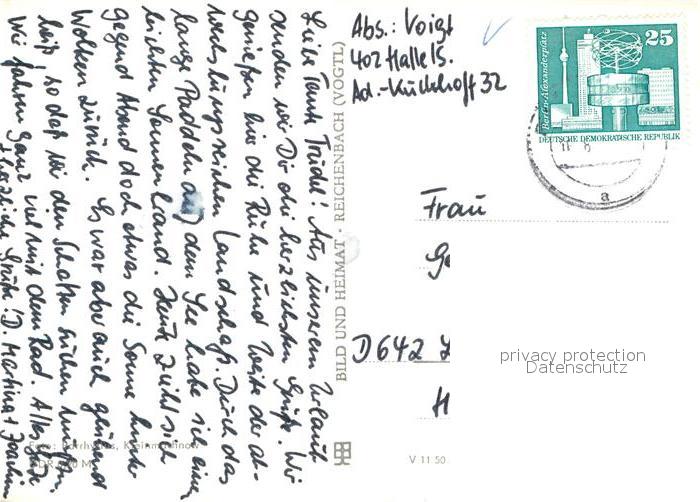 Liebe Tante Trudel! Aus unserem Urlaub
senden wir Dir die herzlichsten Grüße. Wir
genießen hier die Ruhe und Weite der ab-
wechslungsreichen Landschaft. Durch das
lange Paddeln auf dem See habe ich einen
leichten Sonnenbrand. Heute zieht sich
gegend Abend doch etwas die Sonne hinter
Wolken zurück. Es war aber auch
heiß, so daß wir den Schatten suchen mußten.
Wir fahren ganz viel mit dem Rad. Alles Gute
herzliche Grüße! D. Martina + Joachim
Foto: Darr
BILD UND HEIMAT · REICHENBACH (VOGTL)
V 11 50
Abs.: Voigt
402 Halle/S.
Ad.-Kuckhoff 32
Berlin-Alexanderplatz
25
DEUTSCHE DEMOKRATISCHE REPUBLIK
a
Frau
Ge
D 642
H
privacy protection
Datenschutz